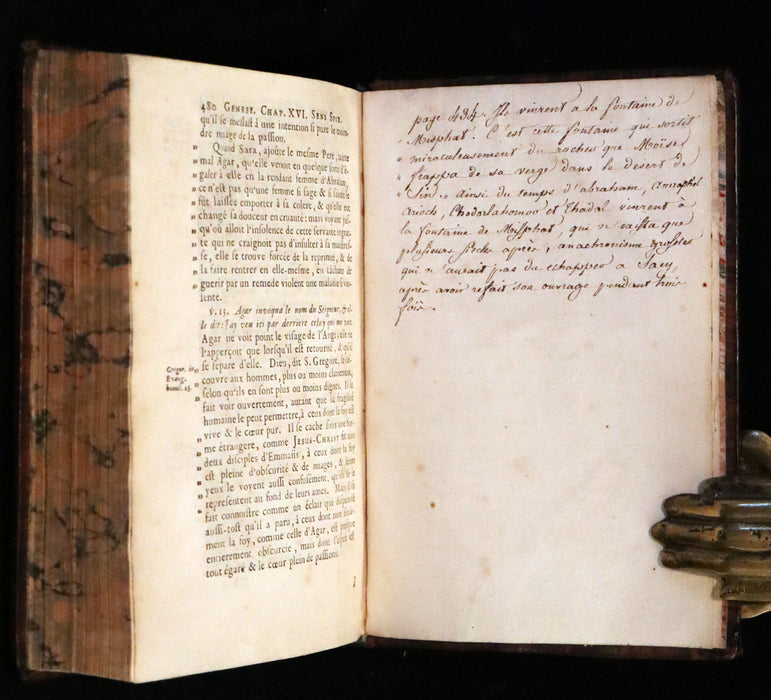 480 GENESE. CHAP. XVI. SENS SPIR.
qu'il se meslast à une intention si pure le moin-
dre nuage de la passion.
„ Quand Sara, ajoûte le mesme Pere, traite
„ mal Agar, qu'elle venoit en quelque sorte d'é-
„ galer à elle en la rendant femme d'Abraham,
„ ce n'est pas qu'une femme si sage & si sainte se
„ fût laissée emporter à sa colere, & qu'elle eût
„ changé sa douceur en cruauté: mais voyant jus-
„ qu'où alloit l'insolence de cette servante ingra-
„ te qui ne craignoit pas d'insulter à sa maistres-
„ se, elle se trouve forcée de la reprimer, & de
„ la faire rentrer en elle-mesme, en tâchant de
„ guerir par un remede violent une maladie si vio-
„ lente.
℣. 13. Agar invoqua le nom du Seigneur, & el-
le dit: J'ay veu icy par derriere celuy qui me voit.
Agar ne voit point le visage de l'Ange: elle ne
l'apperçoit que lorsqu'il est retourné, & qu'il
Gregor. in
Evang.
homil. 23.
se separe d'elle. Dieu, dit S. Gregoire, se dé-
„ couvre aux hommes, plus ou moins clairement,
„ selon qu'ils en sont plus ou moins dignes. Il se
„ fait voir ouvertement, autant que la fragilité
„ humaine le peut permettre, à ceux dont la foy est
„ vive & le cœur pur. Il se cache sous une for-
„ me étrangere, comme JESUS-CHRIST fit aux
„ deux disciples d'Emmaüs, à ceux dont la foy
„ est pleine d'obscurité & de nuages, & leurs
„ yeux le voyent aussi confusement, qu'ils se le
„ representent au fond de leurs ames. Mais il se
fait connoistre comme un éclair qui disparoist
aussi-tost qu'il a paru, à ceux dont non seule-
ment la foy, comme celle d'Agar, est presque
entierement obscurcie, mais dont l'esprit est
tout égaré & le cœur plein de passions.
page 434. Ils vinrent a la fontaine de
„ Misphat. C'est cette fontaine qui sortit
„ miraculeusement du rocher que Moïse
„ frappa de sa verge dans le desert de
„ Sin. ainsi du temps d'abraham, amraphel
Arioch, Chodorlahomor et Thadal vinrent à
la fontaine de Misphat, qui n'exista que
plusieurs siecles après, anachronisme grossier
qui n'aurait pas du echapper a Sacy,
après avoir refait son ouvrage pendant trois
fois.